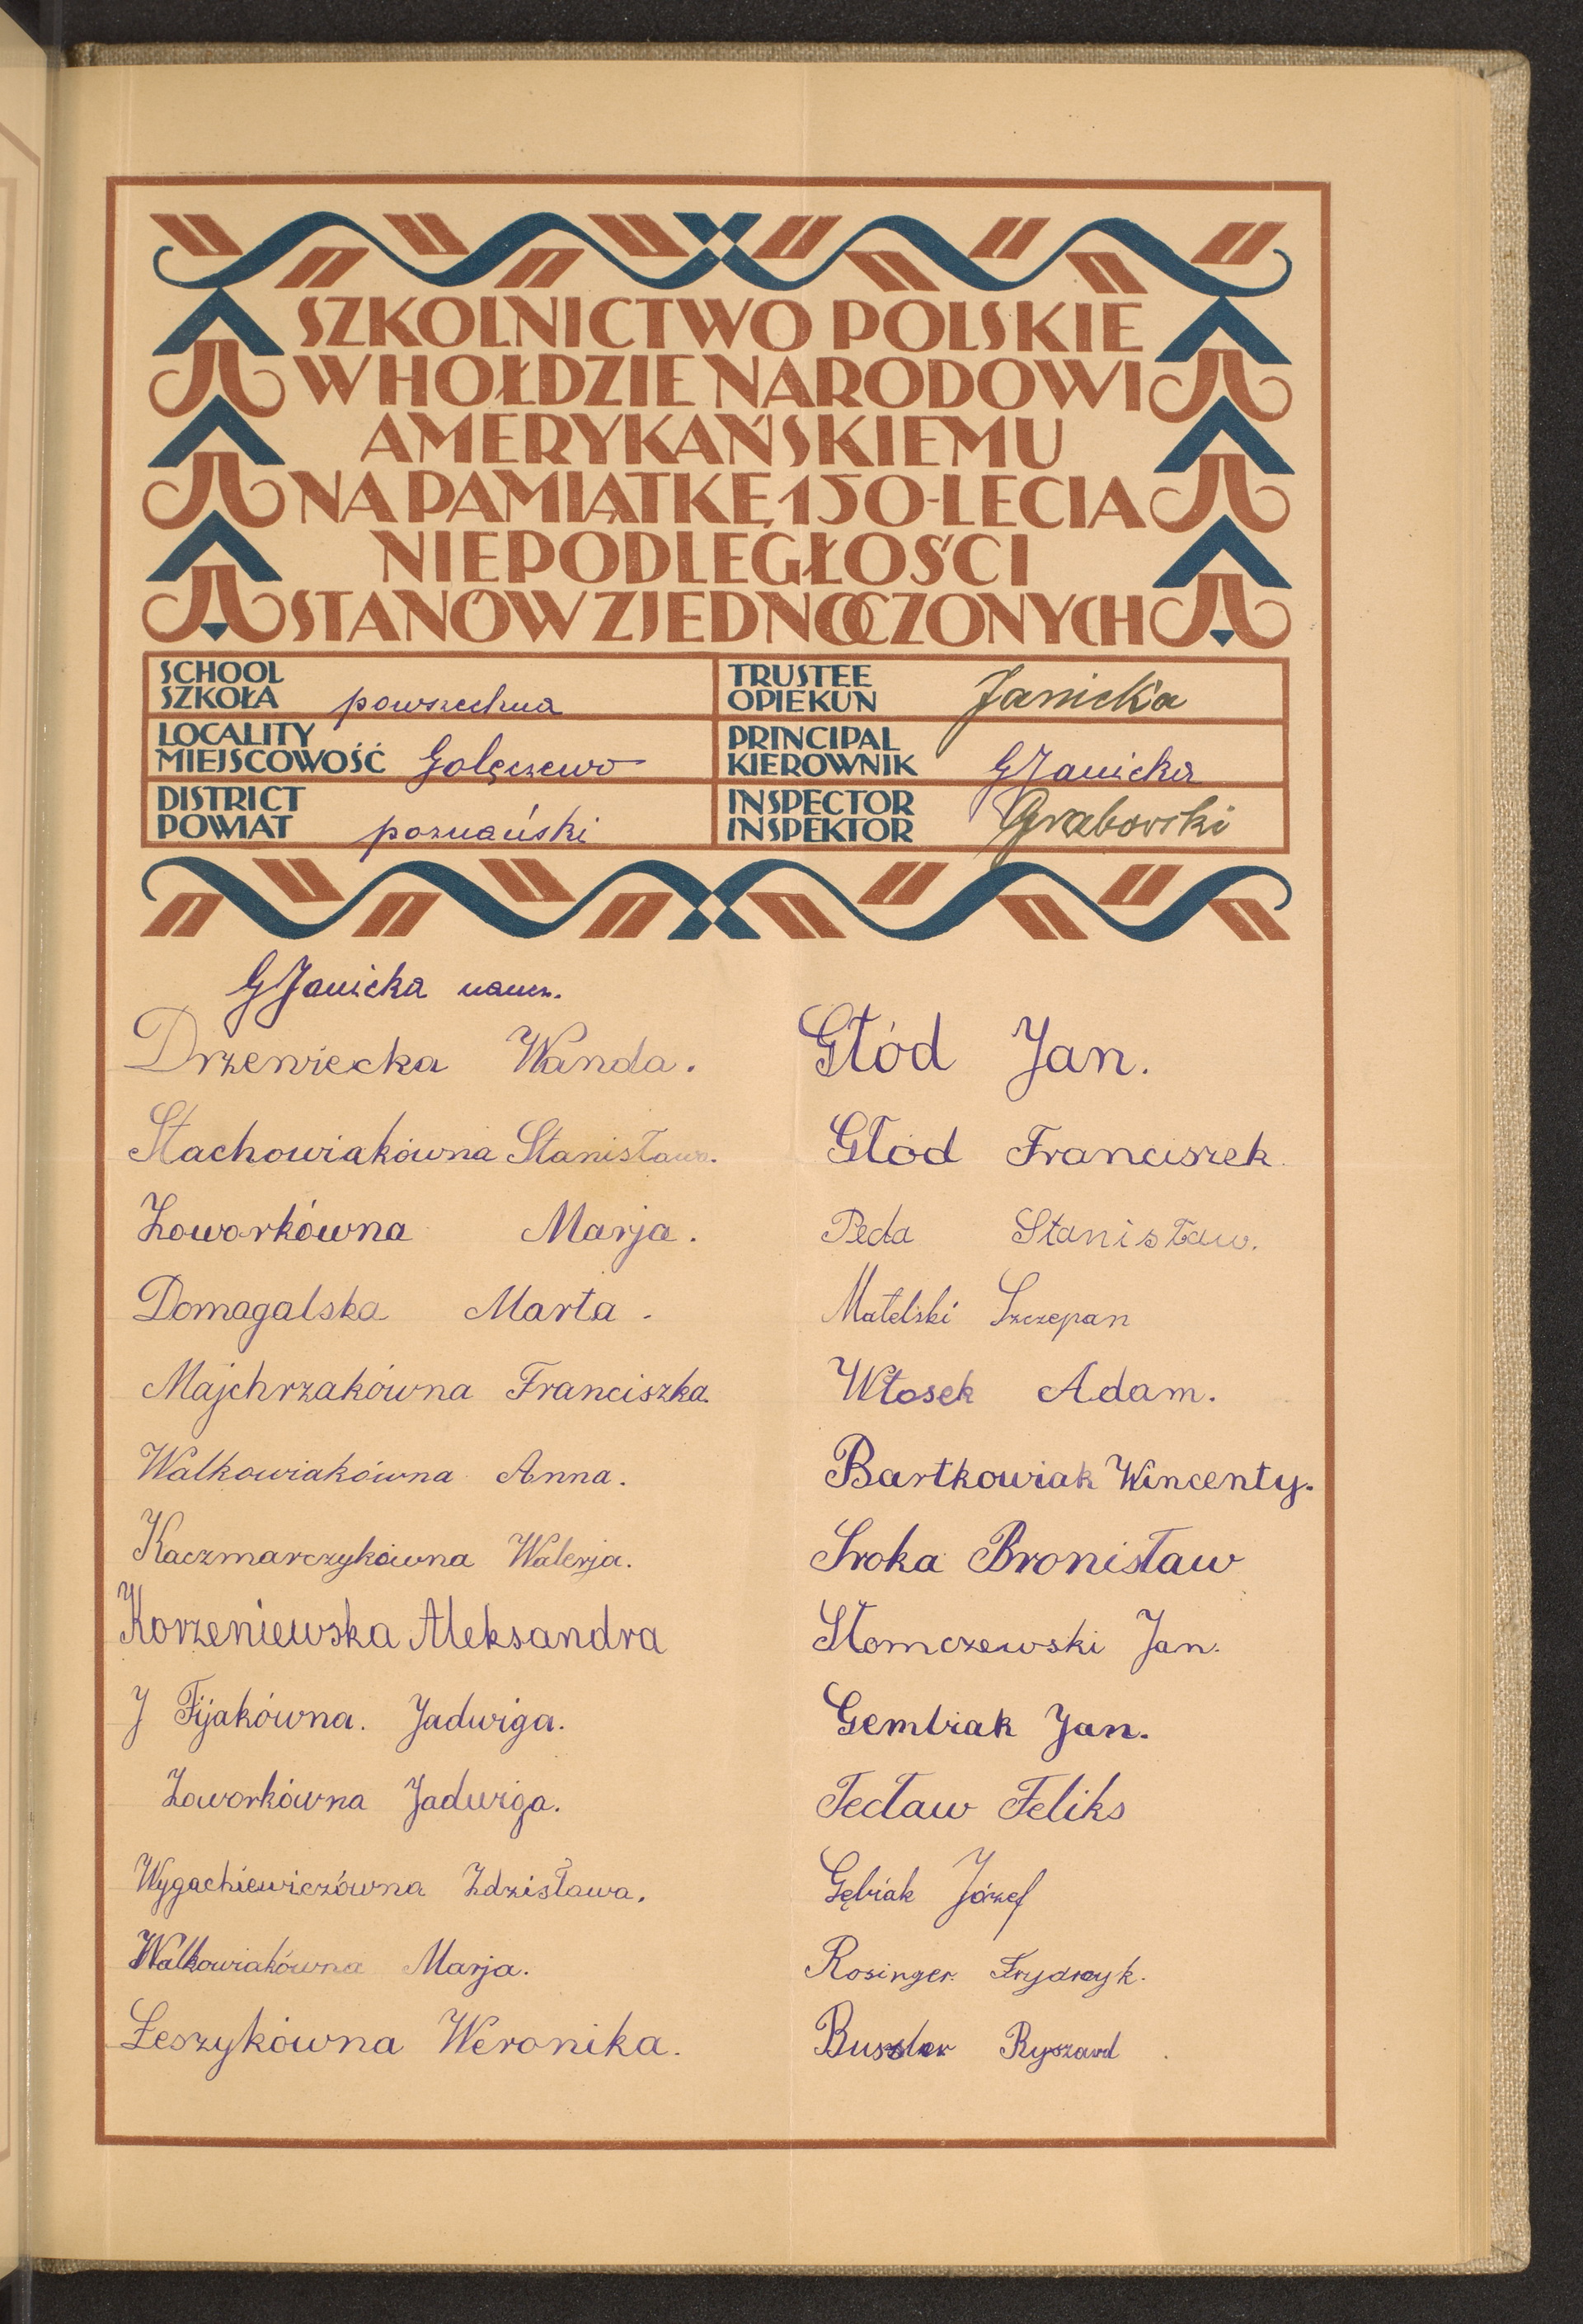 SZKOLNICTWO POLSKIE
W HOŁDZIE NARODOWI
AMERYKAŃSKIEMU
NA PAMIĄTKĘ 150-LECIA
NIEPODLEGŁOŚCI
STANÓW ZJEDNOCZONYCH
SCHOOL
SZKOŁA powszechna
TRUSTEE
OPIEKUN Janicka
LOCALITY
MIEJSCOWOŚĆ Golęczewo
PRINCIPAL
KIEROWNIK GJanicka
DISTRICT
POWIAT poznański
INSPECTOR
INSPEKTOR Grabowski
GJanicka naucz.
Drzewiecka Wanda.
Stachowiakówna Stanisława.
Zaworkówna Marja.
Domagalska Marta.
Majchrzakówna Franciszka.
Walkowiakówna Anna.
Kaczmarczykówna Walerja.
Korzeniewska Aleksandra
J Fijakówna. Jadwiga.
Zaworkówna Jadwiga.
Wygachiewiczówna Zdzisława.
Walkowiakówna Marja.
Leszykówna Weronika.
Głód Jan.
Głód Franciszek.
Peda Stanisław.
Matelski Szczepan
Włosek Adam.
Bartkowiak Wincenty.
Sroka Bronisław
Słomczewski Jan.
Gembiak Jan.
Tecław Feliks
Gębiak Józef
Rosinger Frydryk.
Bussler Ryszard